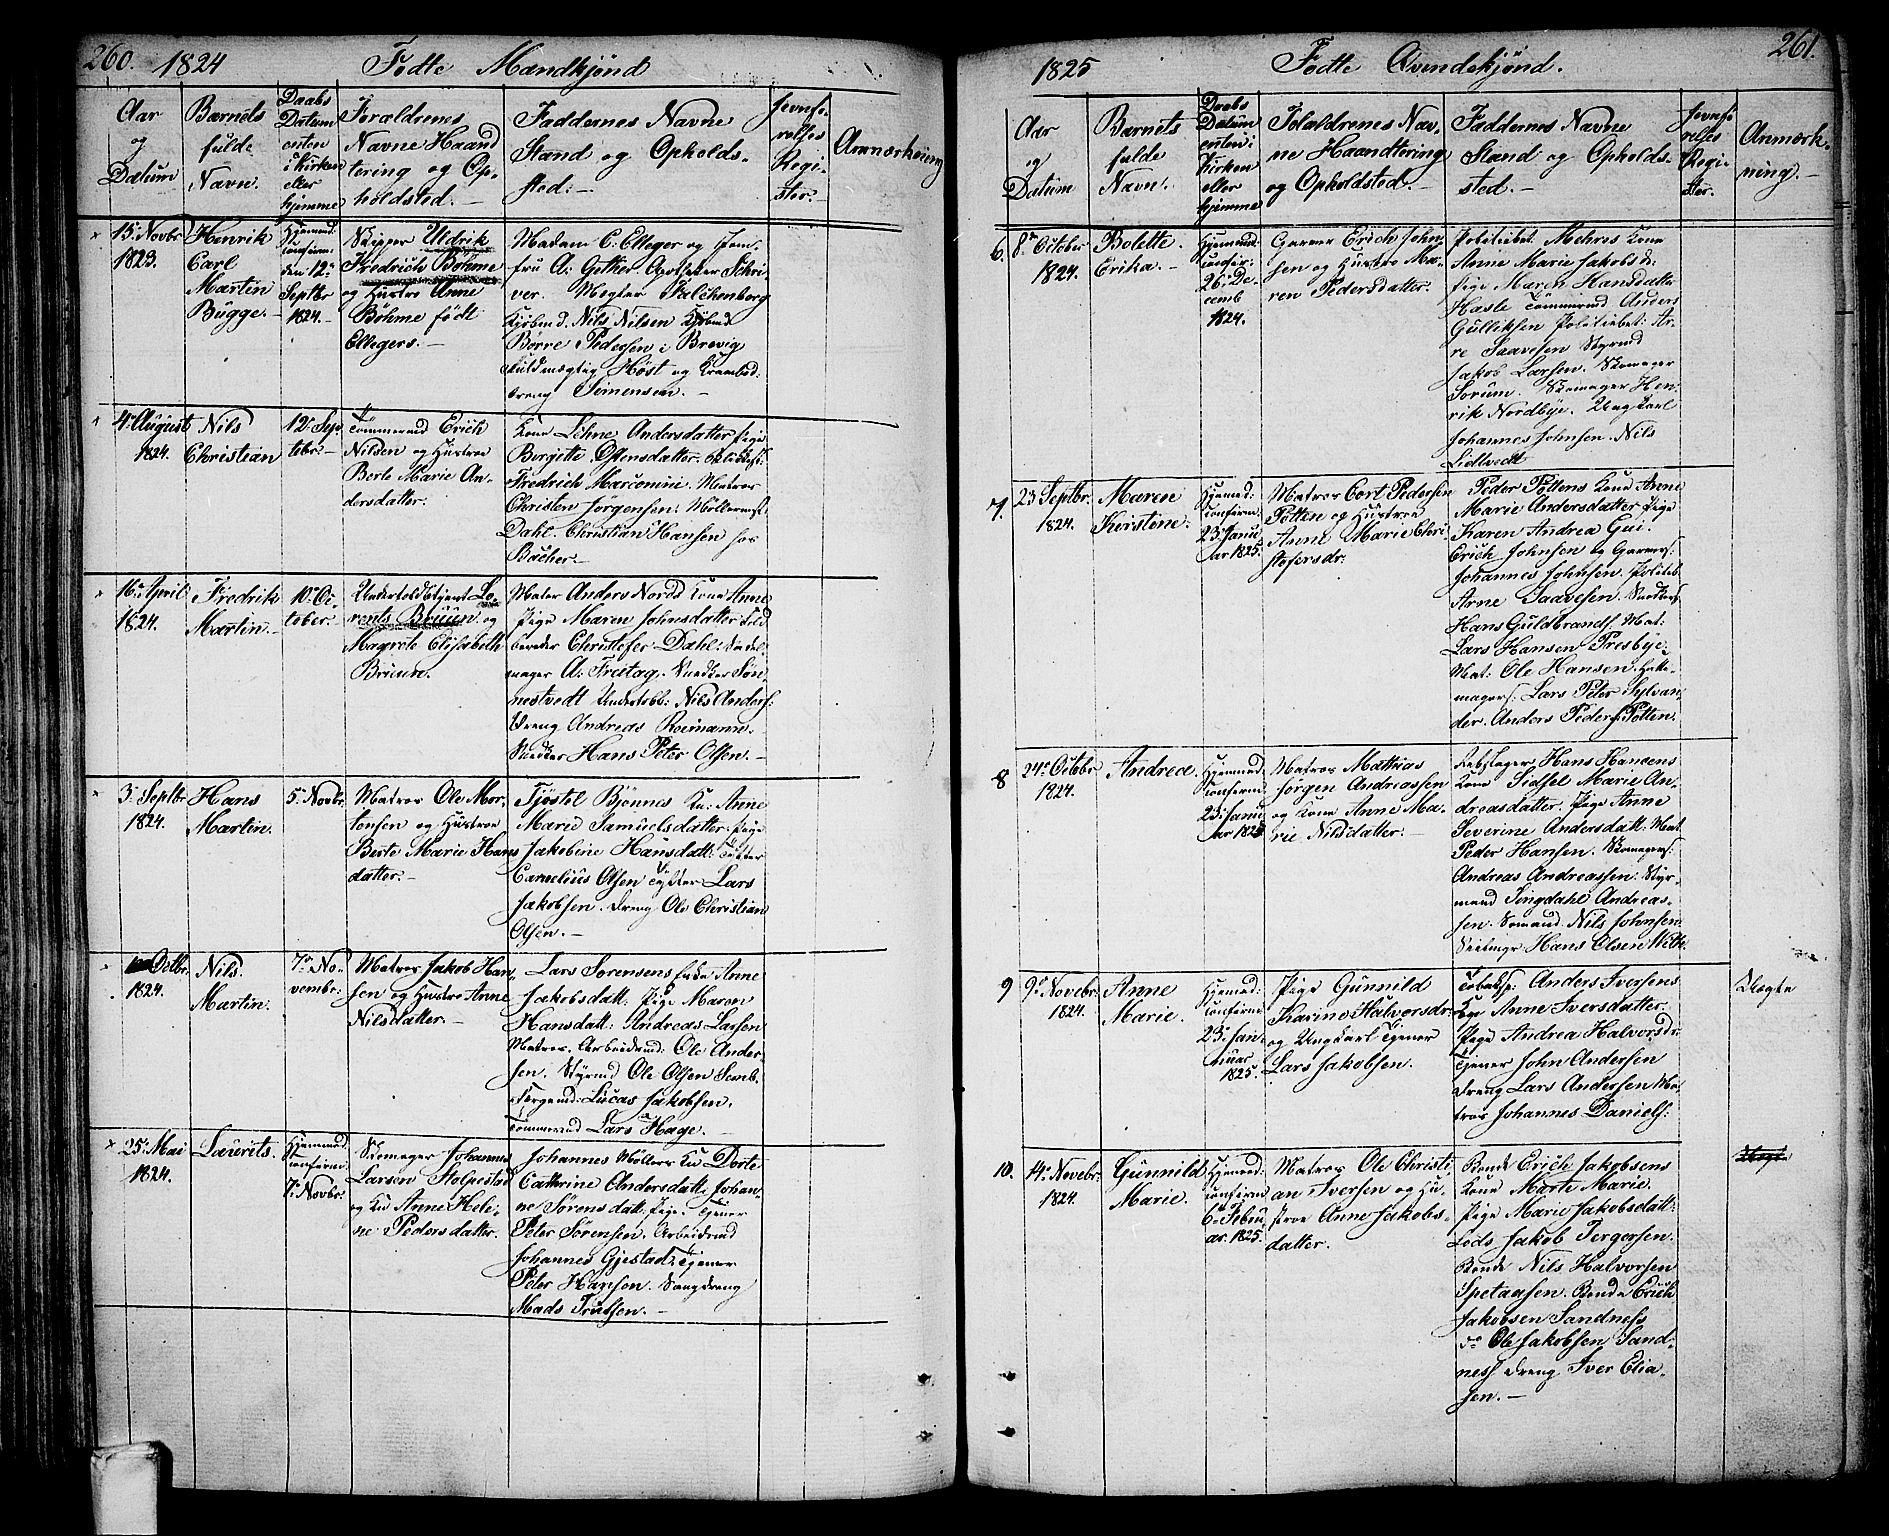 260. 1824 Fødte Mandkjønd
Aar
og
Datum
Barnets
fulde
Navn.
Daabs
Datum
enten
i Kirken
eller
hjemme
Forældrenes
Navne Haand
tering og Op-
holdsted. —
Faddernes Navne
Stand og Opholds-
sted. —
Jevnfø-
relses
Regi-
ster. —
Anmærkning
15 Novbr
1823.
Henrik
Carl
Martin
Bügge. —
Hjemmed.
Confirm.
den 12
Septbr
1824. —
Skipper Uldrik
Fredrich Bøhme
og Hustro Anne
Bøhme født
Ellegers. —
Madam C. Elleger og Jom-
fru A. Gether Apotheker Schri-
ver. Mægler Falchenberg
Kjøbmd. Nils Nilsen Kjøbmd
Borre Pedersen i Brevig
fuldmægtig Høst og Krambod.
dreng Simensen. —
4 August
1824.
Nils
Christian
12 Sep
tebr. —
Tømmermd Erich
Nilsen og Hustroe
Berte Marie An-
dersdatter.
Kone Lehne Andersdatter Pige
Bergitte Ostensdatter.
Fredrich Marconini. Matros
Christen Jørgensen. Møllermst.
Dahl. Christian Hansen hos
Bacher. —
16 April
1824.
Fredrik
Martin. —
10 Oc-
tober. —
Undertoldbetjent Lo-
rents Brüün og
Magrete Elisabeth
Brüün.
Maler Anders Nordd Kone Anne
Pige Maren Johnsdatter
Christofer Dahl. Sadel
mager A. Freitag. Snedker Søn-
nestvedt Undertoldb: Nils Anders:
Dreng Andreas Roemann.
Snedker Hans Peter Olsen. —
3 Septbr
1824.
Hans
Martin.
5 Novbr.
Matros Ole Mor-
tensen og Hustroe
Berte Marie Hans
datter. —
Tjøstel Bjønnes Ku: Anne
Marie Samuelsdatter. Pige
Jakobine Hansdatt:
Carnelius Olsen Lars
Jakobsen. Dreng Ole Christian
Olsen. —
Octbr.
1824.
Nils
Martin.
7 No-
vembr.
Matros Jakob Han-
sen og Hustro Anne
Nilsdatter. —
Lars Sørensens Enke Anne
Jakobsdatt: Pige Maren
Hansdatt: Andreas Larsen
Matros. Arbeidsmd: Ole Ander-
sen. Styrmd Ole Olsen Semb.
Færgemd: Lucas Jakobsen.
Tømmermd Lars Hage. —
25 Mai
1824.
Laurits.
Hjemmed:
Confirm
7 Novbr
Skomager Johannes
Larsen Stolpestad
og Ku Anne Hele-
ne Pedersdatter.
Johannes Møllers Ku Dorte
Cathrine Andersdatt. Johan-
ne Sørensdatt: Pige. Tjener
Peter Sørensen. Arbeidsmd
Johannes Gjestad. Tjener
Peter Hansen. Dreng
Mads Trulsen. —
1825 Fødte Qvindekjønd. 261.
Aar
og
Datum
Barnets
fulde
Navn.
Daabs
Datum
enten i
Kirken
eller
hjemme
Forældrenes Nav-
ne Haandtering
og Opholdsted. —
Faddernes Navne
Stand og Opholds-
sted. —
Jevnfø
relses
Regi-
ster.
Anmærk-
ning. —
6. 8 October
1824.
Bolette
Erika. —
Hjemmd:
Confir:
26 De-
cemb
1824.
Garver Erich John-
sen og Hustro Ma-
ren Pedersdatter.
Politiebet. Mehres Kone
Anne Marie Jakobsd:
Pige Maren Hansdatter
Hasle Tømmermd Anders
Gulliksen Politiebet: Ar-
ne Saavesen Styrmd
Jakob Larsen. Skomager
Sorum. Skomager Hen-
rik Nordbye. Ungkarl
Johannes Johnsen. Nils
Lidtvedt
7. 23 Septbr.
1824.
Maren
Kirstine.
Hjemmd:
Confirm.
23 Janu
ar 1825.
Matros Cort Pedersen
Potten og Hustroe
Anne Marie Chri-
stofersdr.
Peder Pottens Kone Anne
Marie Andersdatter Pige
Karen Andrea Gui.
Erich Johnsen og Garvers:
Johannes Johnsen. Politieb.
Arne Saavesen. Snedker
Hans Guldbrands: Mat:
Lars Hansen Presbye.
Mat: Ole Hansen. Hatte-
magers: Lars Peter Sylvan
der. Anders Peders: Potten.
8 24 Octobr
1824.
Andrea.
Hjemmed.
Confirm.
23 Janu
ar 1825
Matros Mathias
Jørgen Andreassen
og Kone Anne Ma-
rie Nilsdatter. —
Rebslager Hans Hansens
Kone Sidsel Marie An-
dreasdatter. Pige Anne
Severine Andersdatt: Mat.
Peder Hansen. Skomagers:
Andreas Andreassen. Styr-
mand Jongdahl Andreas-
sen. Somand Nils Johnsen.
Seilmgr Hans Olsen With.
9 9 Novebr:
1824.
Anne
Marie.
Hjemmed:
Confirm
23 Jan-
uar
1825.
Pige Günnild
Karine Halvorsdr:
og Ungkarl Tjener
Lars Jakobsen.
Anders Iversens
Anne Iversdatter
Pige Andrea Halvorsdr:
Tjener John Andersen
Dreng Lars Andersen Ma-
tros Johannes Daniels:
Uægte
10. 14 Novebr.
1824.
Günnild
Marie.
Hjemmed:
Confirm
6 Febru
ar. 1825.
Matros Ole Christi
an Iversen og Hu-
stroe Anne Jakobs-
datter.
Bonde Erich Jakobsens
Kone Marte Marie.
Pige Marie Jakobsdatt:
Lods Jakob Tergersen.
Bonde Nils Halvorsen
Spetaasen. Bonde Erich
Jakobsen Sandness
do Ole Jakobsen Sand-
ness Dreng Iver Elia-
sen. —